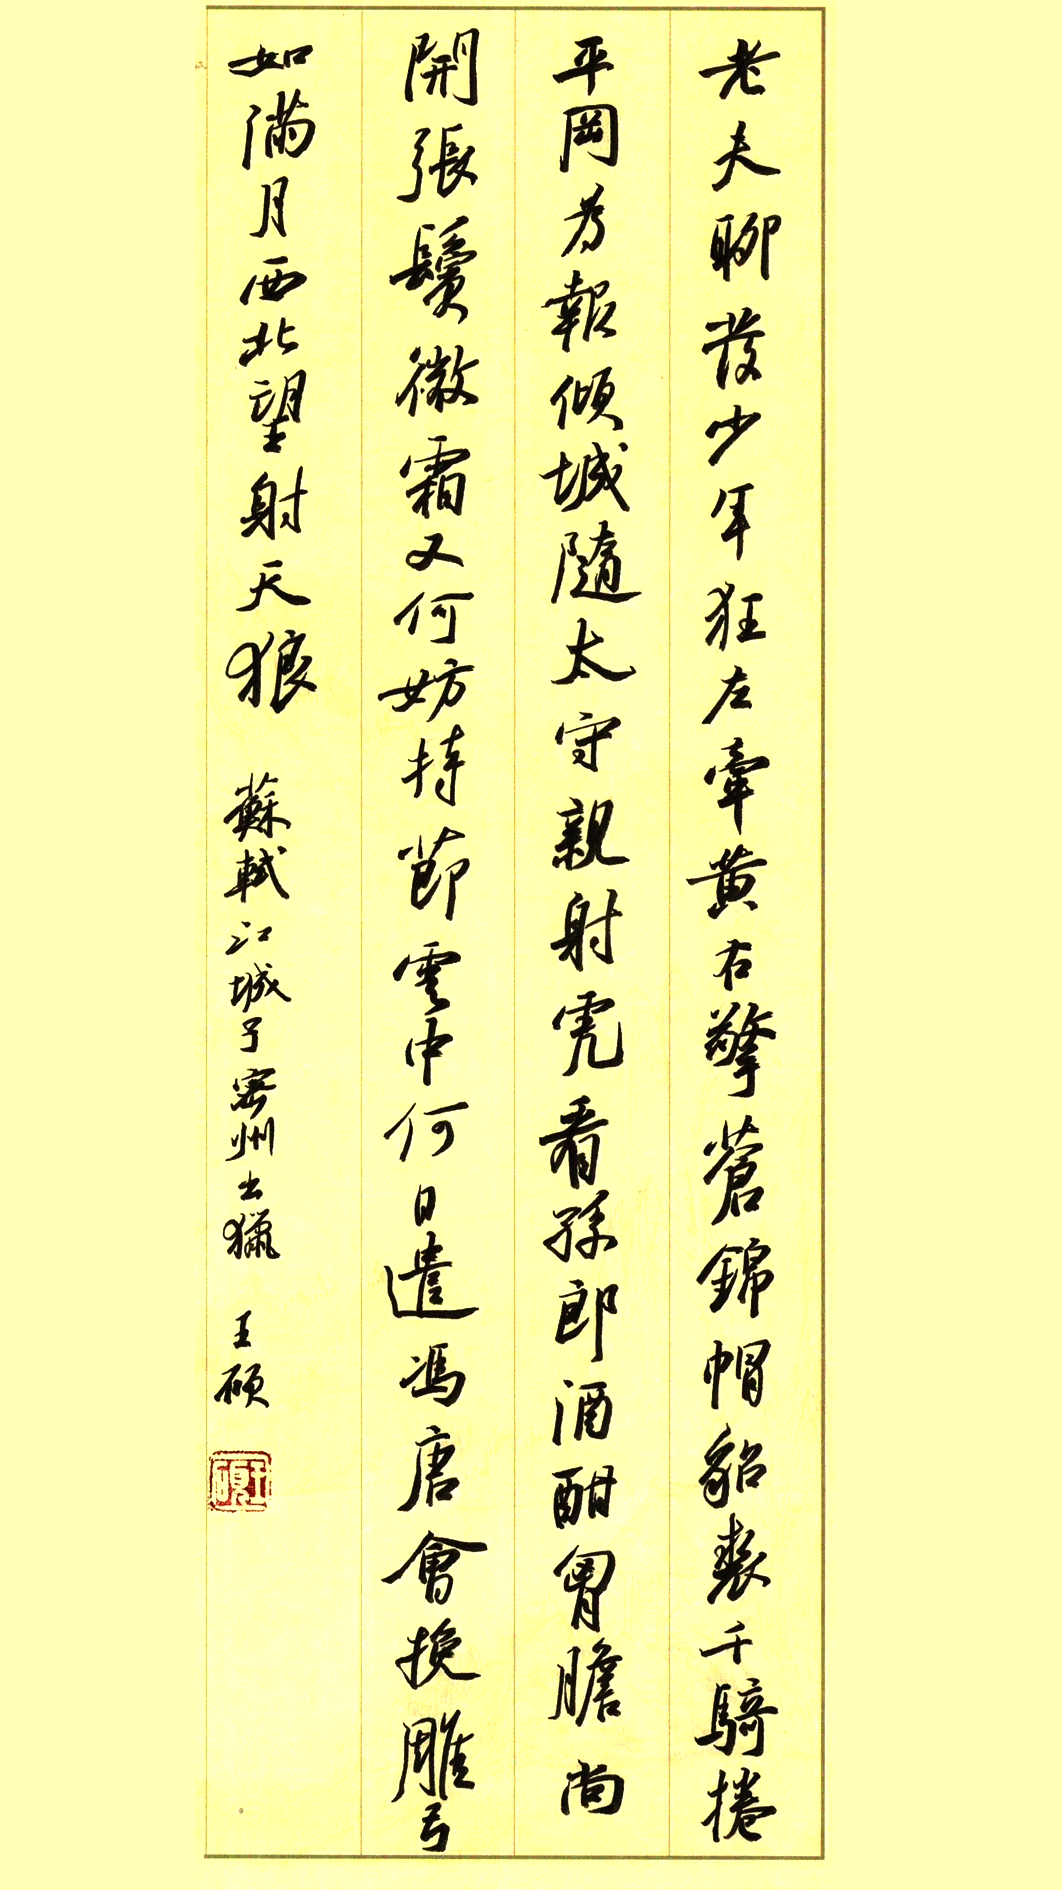 老夫聊發少年狂左牽黄右擎蒼錦帽貂裘千騎捲
平岡為報傾城隨太守親射虎看孫郎酒酣胷膽尚
開張鬢微霜又何妨持節雲中何日遣馮唐會挽雕弓
如滿月西北望射天狼 蘇軾江城子密州出獵 王硕
王碩